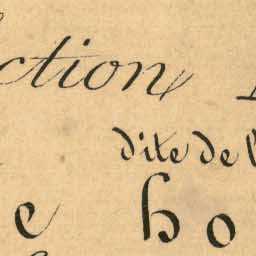 ction
dite de l
e ho